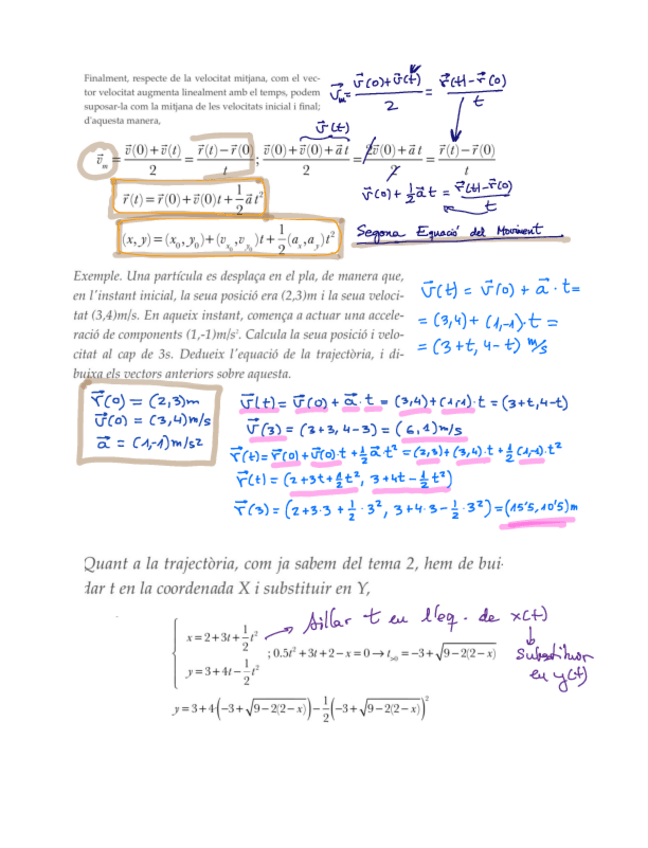 Finalment, respecte de la velocitat mitjana, com el vec-
tor velocitat augmenta linealment amb el temps, podem
suposar-la com la mitjana de les velocitats inicial i final;
d'aquesta manera,
v⃗m = (v⃗(0)+v⃗(t))/2 = (r⃗(t)-r⃗(0))/t
v⃗(t)
v⃗m = (v⃗(0)+v⃗(t))/2 = (r⃗(t)-r⃗(0))/t ; (v⃗(0)+v⃗(0)+a⃗ t)/2 = (2v⃗(0)+a⃗ t)/2 = (r⃗(t)-r⃗(0))/t
v⃗(0)+½a⃗t = (r⃗(t)-r⃗(0))/t
r⃗(t)=r⃗(0)+v⃗(0)t+½a⃗t²
(x,y)=(x₀,y₀)+(vx₀,vy₀)t+½(ax,ay)t²
Segona Equació del Moviment
Exemple. Una partícula es desplaça en el pla, de manera que,
en l'instant inicial, la seua posició era (2,3)m i la seua veloci-
tat (3,4)m/s. En aqueix instant, comença a actuar una accele-
ració de components (1,-1)m/s². Calcula la seua posició i velo-
citat al cap de 3s. Dedueix l'equació de la trajectòria, i di-
buixa els vectors anteriors sobre aquesta.
v⃗(t) = v⃗(0) + a⃗·t=
= (3,4)+(1,-1)·t =
= (3+t, 4-t) m/s
r⃗(0) = (2,3)m
v⃗(0) = (3,4)m/s
a⃗ = (1,-1)m/s2
v⃗(t)= v⃗(0) + a⃗·t = (3,4)+(1,-1)·t = (3+t,4-t)
v⃗(3) = (3+3, 4-3) = (6,1)m/s
r⃗(t)=r⃗(0)+v⃗(0)·t+½a⃗t² =(2,3)+(3,4)·t+½(1,-1)·t²
r⃗(t) = (2+3t+½t², 3+4t-½t²)
r⃗(3) = (2+3·3+½·3², 3+4·3-½·3²)=(15'5, 10'5)m
Quant a la trajectòria, com ja sabem del tema 2, hem de bui-
dar t en la coordenada X i substituir en Y,
Aïllar t en l'eq. de x(t)
x=2+3t+½t²
; 0.5t²+3t+2-x=0→t>0=-3+√(9-2(2-x))
y=3+4t-½t²
Substituir
en y(t)
y=3+4·(-3+√(9-2(2-x)))-½(-3+√(9-2(2-x)))²